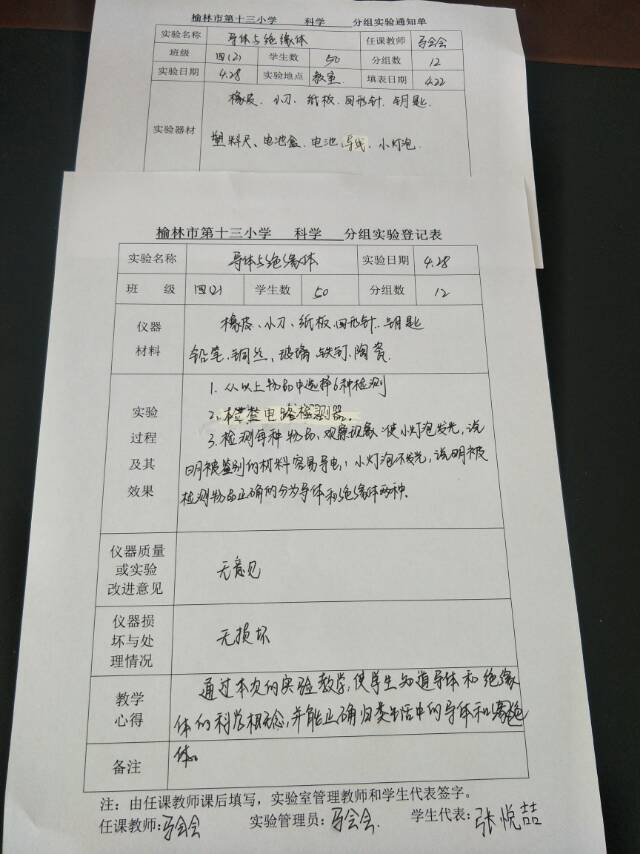 榆林市第十三小学 科学 分组实验通知单
实验名称 导体与绝缘体 任课教师 马会会
班级 四(2) 学生数 50 分组数 12
实验日期 4.28 实验地点 教室 填表日期 4.22
实验器材 橡皮、小刀、纸板、回形针、钥匙、
塑料尺、电池盒、电池、导线、小灯泡
榆林市第十三小学 科学 分组实验登记表
实验名称 导体与绝缘体 实验日期 4.28
班 级 四(2) 学生数 50 分组数 12
仪器 橡皮、小刀、纸板、回形针、钥匙
材料 铅笔、铜丝、玻璃、铁钉、陶瓷.
1. 从以上物品中选择6种检测
实验 2. 检查电路检测器。
过程 3. 检测每种物品、观察现象:使小灯泡发光,说
及其 明被鉴别的材料容易导电;小灯泡不发光,说明被
效果 检测物品正确的分为导体和绝缘体两种.
仪器质量
或实验 无意见
改进意见
仪器损
坏与处 无损坏
理情况
教学 通过本次的实验教学,使学生知道导体和绝缘
心得 体的科学概念,并能正确归类生活中的导体和绝缘
备注 体。
注:由任课教师课后填写,实验室管理教师和学生代表签字。
任课教师:马会会 实验管理员:马会会 学生代表:张悦喆